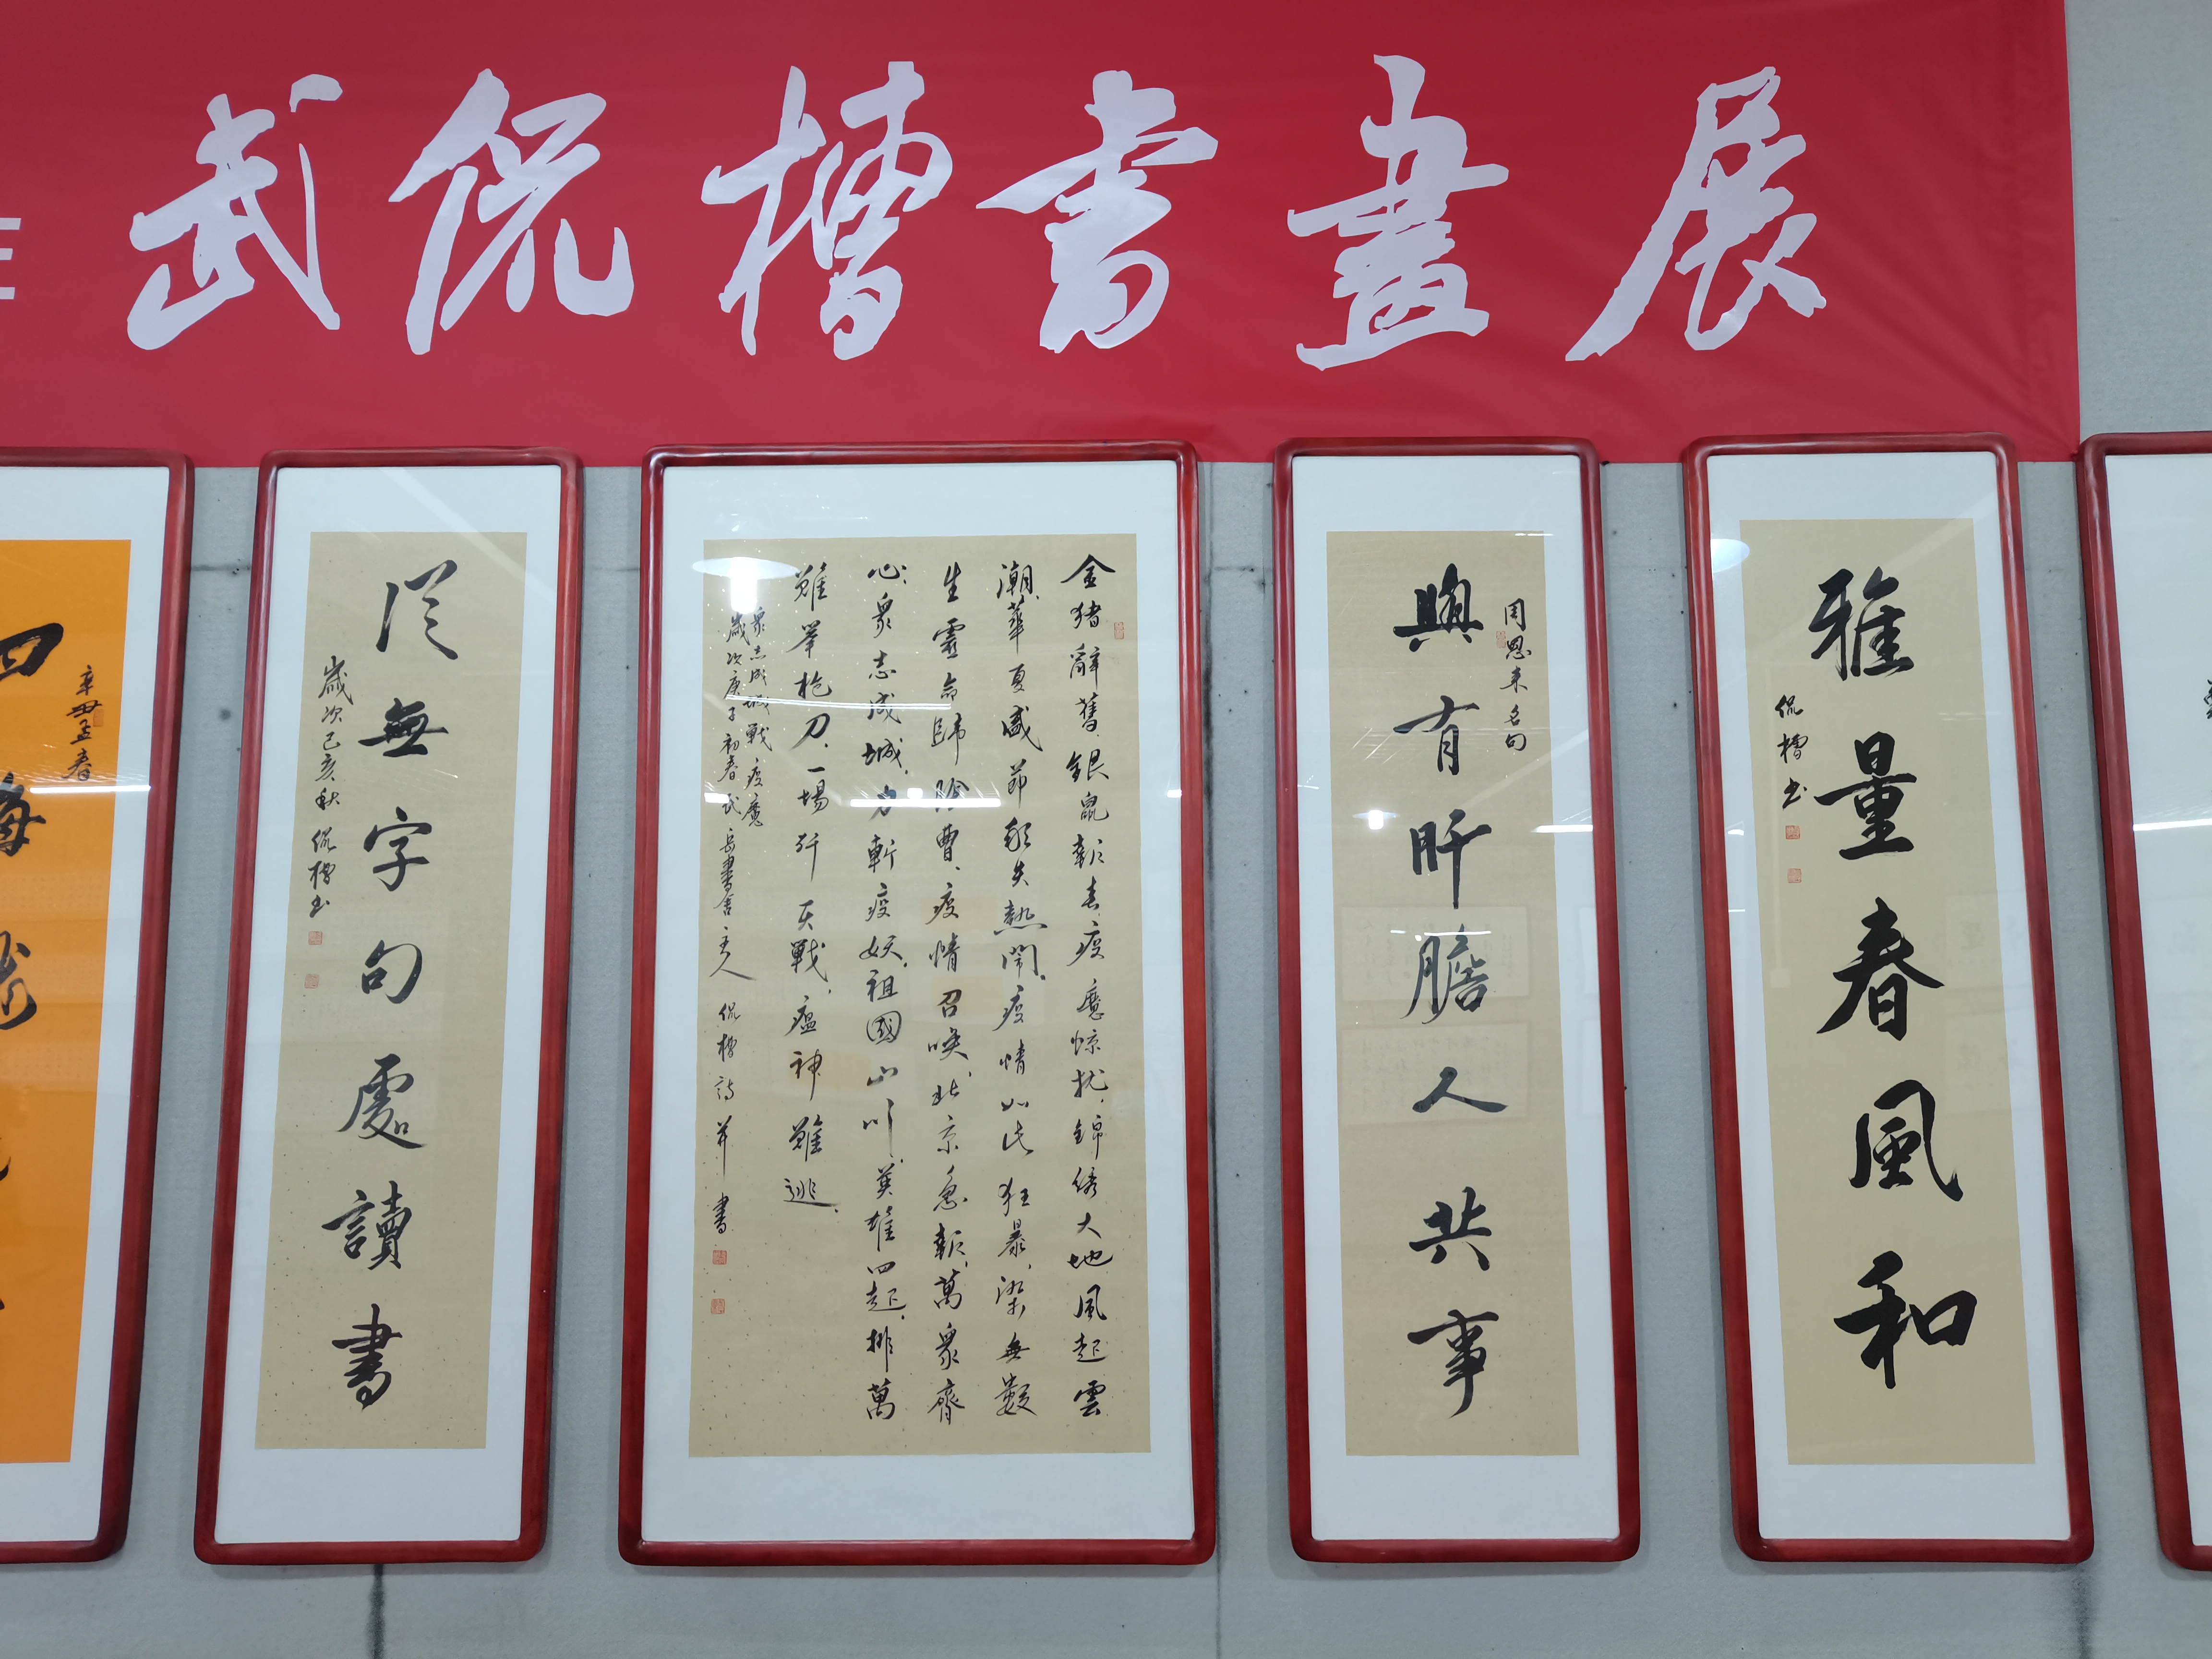 武侃檀書畫展
雅量春風和
侃檀书
周恩来名句
與有肝膽人共事
金猪辭舊銀鼠報春疫魔惊扰錦绣大地風起雲
潮華夏盛節頓失熱鬧疫情如此狂暴染無數
生靈命歸陰曹疫情召唤北京急報萬衆齊
心衆志成城力斬疫妖祖國山川英雄四起排萬
難舉枪刀一場歼灭戰瘟神難逃
衆志成城戰疫魔
歲次庚子初春武岳書舍主人侃檀詩并書
從無字句處讀書
歲次己亥秋侃檀书
辛丑孟春
四海